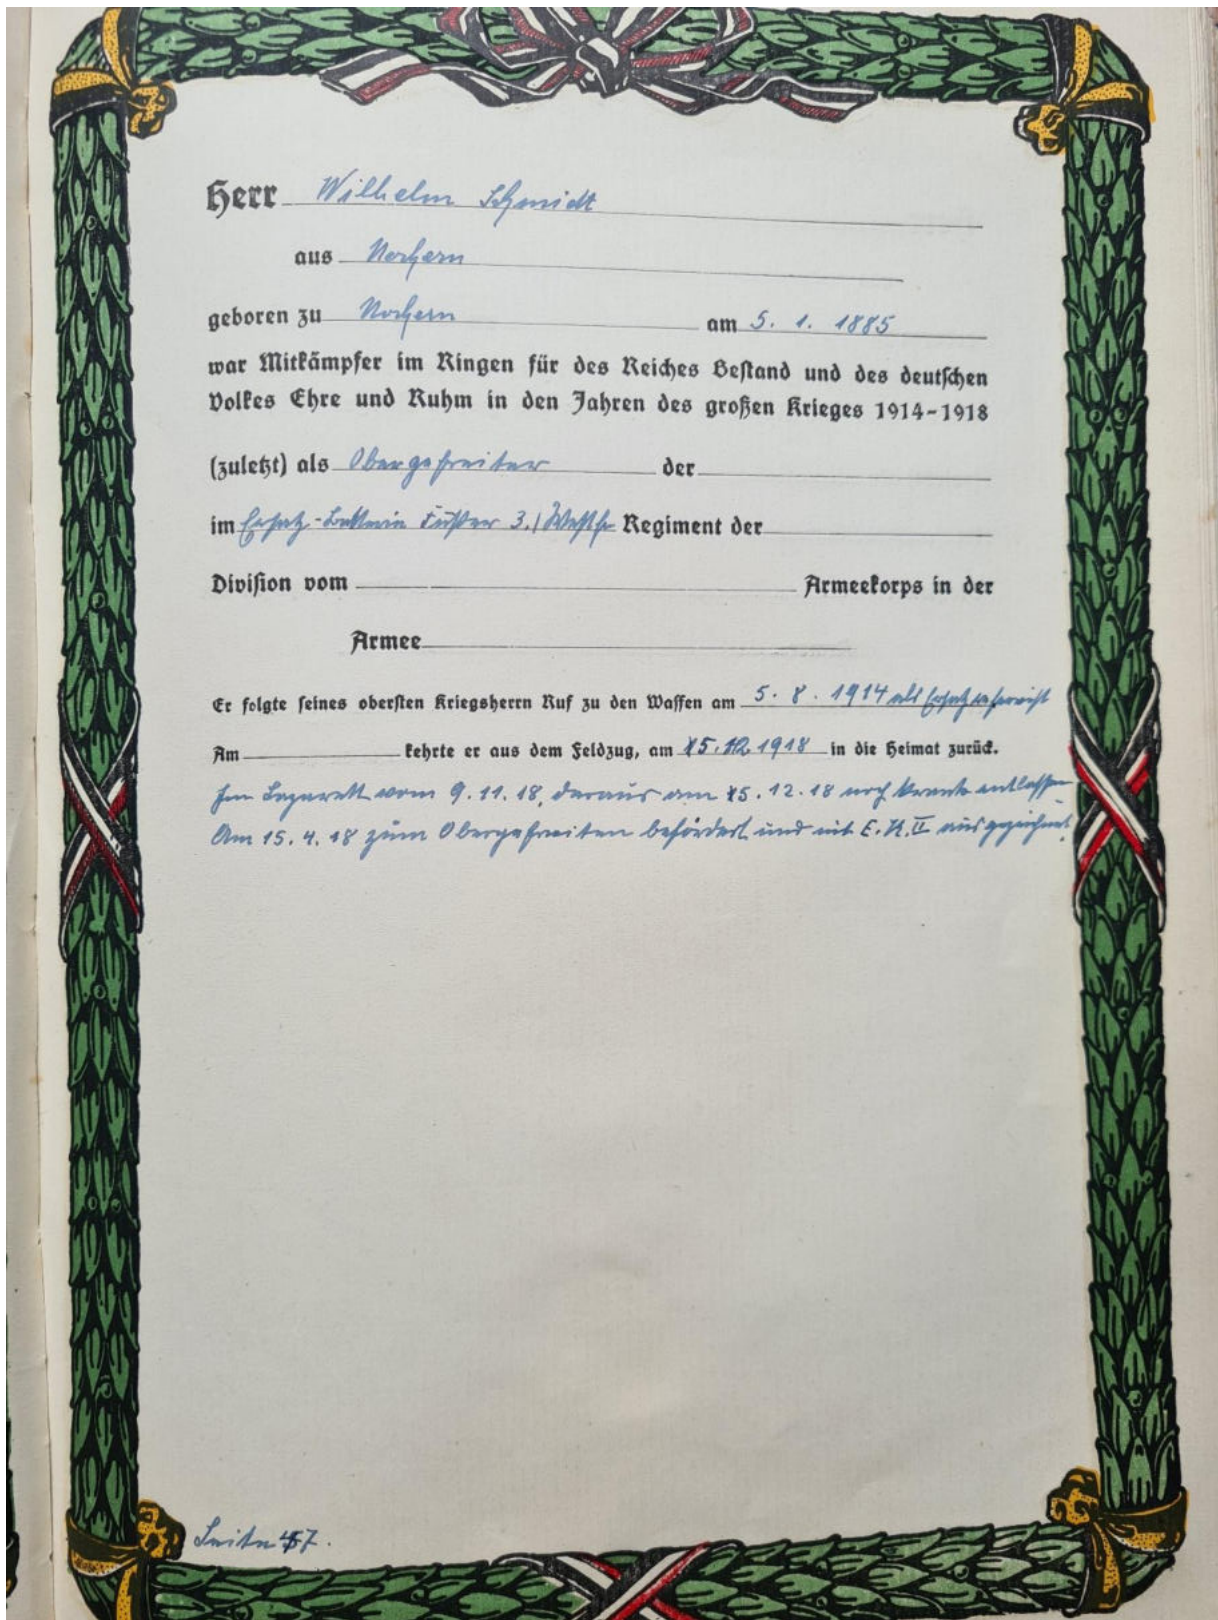 Herr Wilhelm Schmidt
aus Nochern
geboren zu Nochern am 5. 1. 1885
war Mitkämpfer im Ringen für des Reiches Bestand und des deutschen
Volkes Ehre und Ruhm in den Jahren des großen Krieges 1914-1918
(zuletzt) als Obergefreiter der
im Ersatz-Batterie 3./ Regiment der
Division vom Armeekorps in der
Armee
Er folgte seines obersten Kriegsherrn Ruf zu den Waffen am 5. 8. 1914 als Ersatzreservist
Am kehrte er aus dem Feldzug, am 15.12.1918 in die Heimat zurück.
Im Lazarett vom 9.11.18, daraus am 15.12.18 noch krank entlassen
Am 15.4.18 zum Obergefreiten befördert und mit E.K.II ausgezeichnet.
Seite